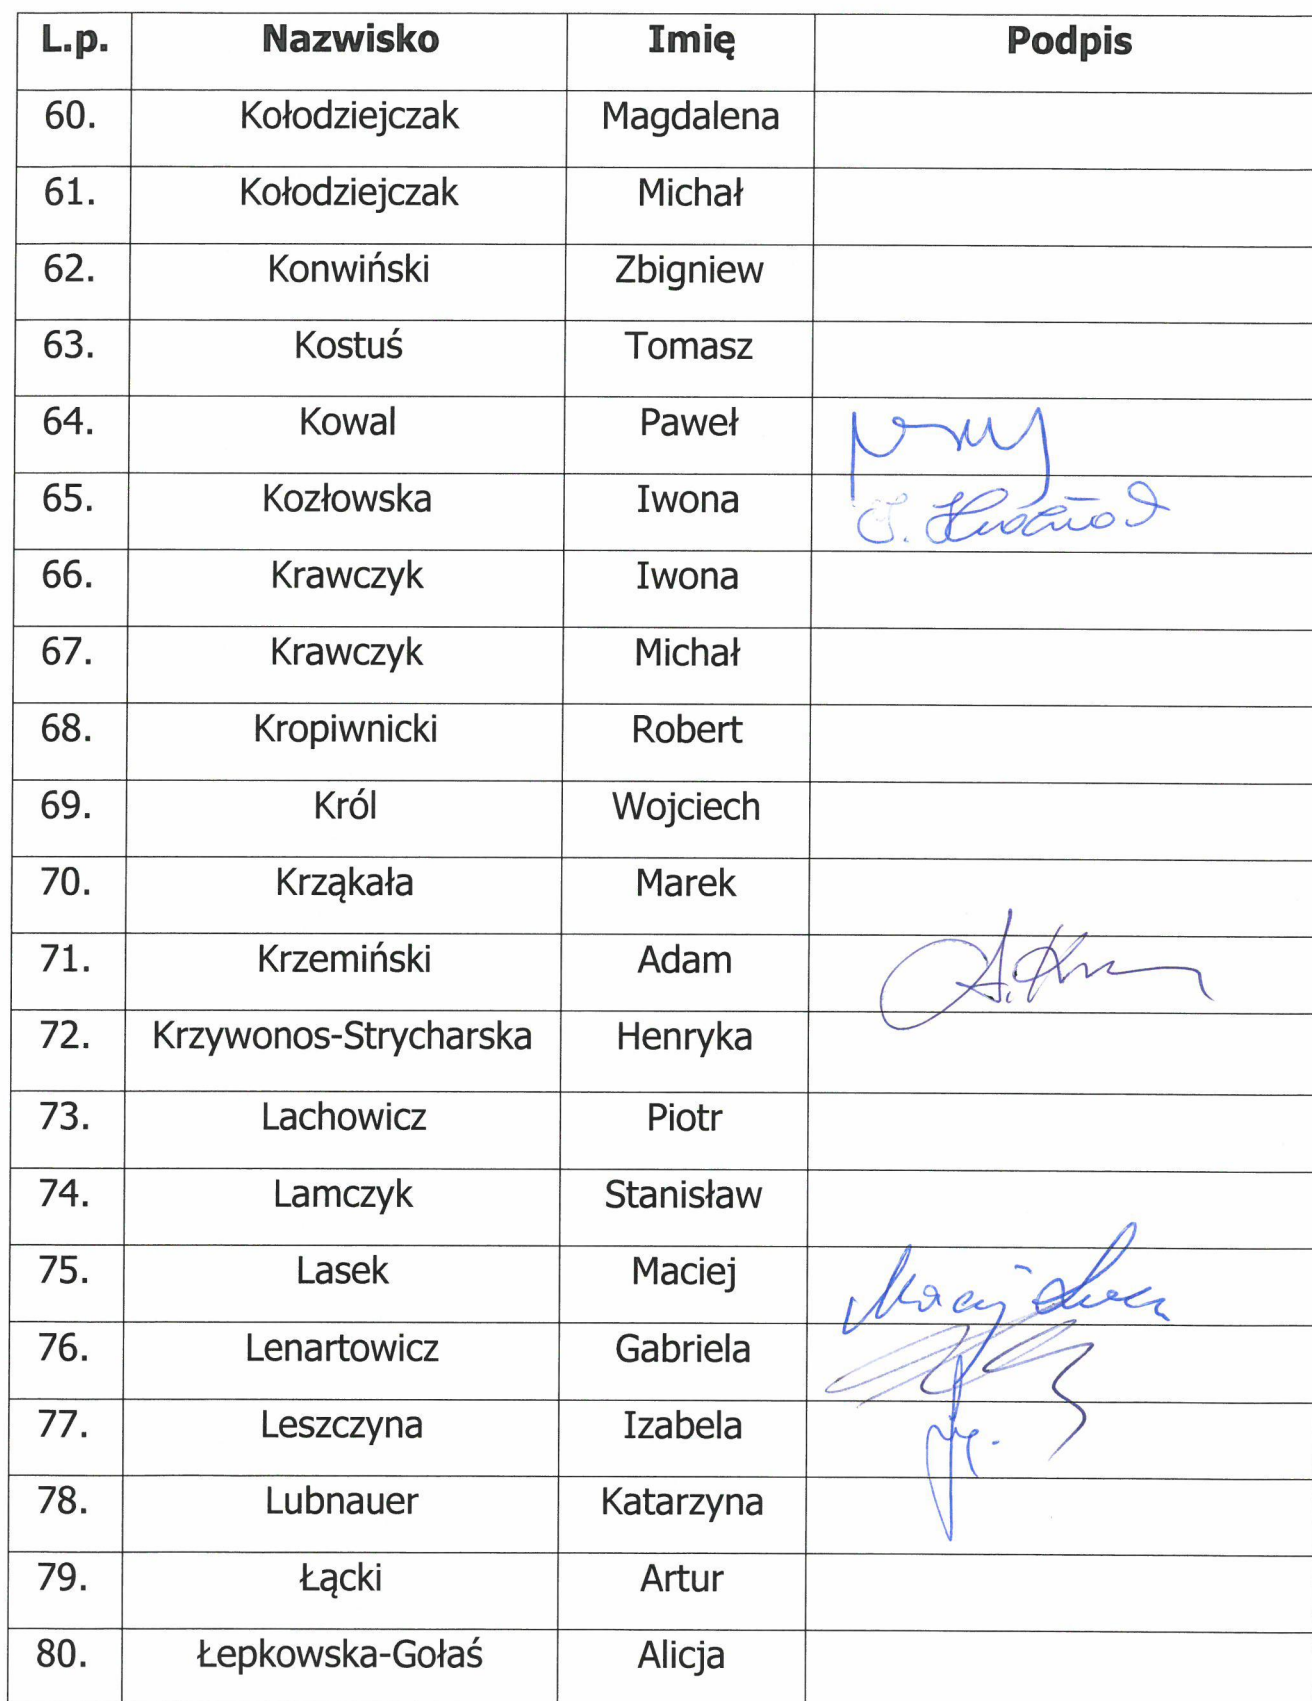 L.p. Nazwisko Imię Podpis
60. Kołodziejczak Magdalena
61. Kołodziejczak Michał
62. Konwiński Zbigniew
63. Kostuś Tomasz
64. Kowal Paweł
65. Kozłowska Iwona
66. Krawczyk Iwona
67. Krawczyk Michał
68. Kropiwnicki Robert
69. Król Wojciech
70. Krząkała Marek
71. Krzemiński Adam
72. Krzywonos-Strycharska Henryka
73. Lachowicz Piotr
74. Lamczyk Stanisław
75. Lasek Maciej Maciej
76. Lenartowicz Gabriela
77. Leszczyna Izabela
78. Lubnauer Katarzyna
79. Łącki Artur
80. Łepkowska-Gołaś Alicja